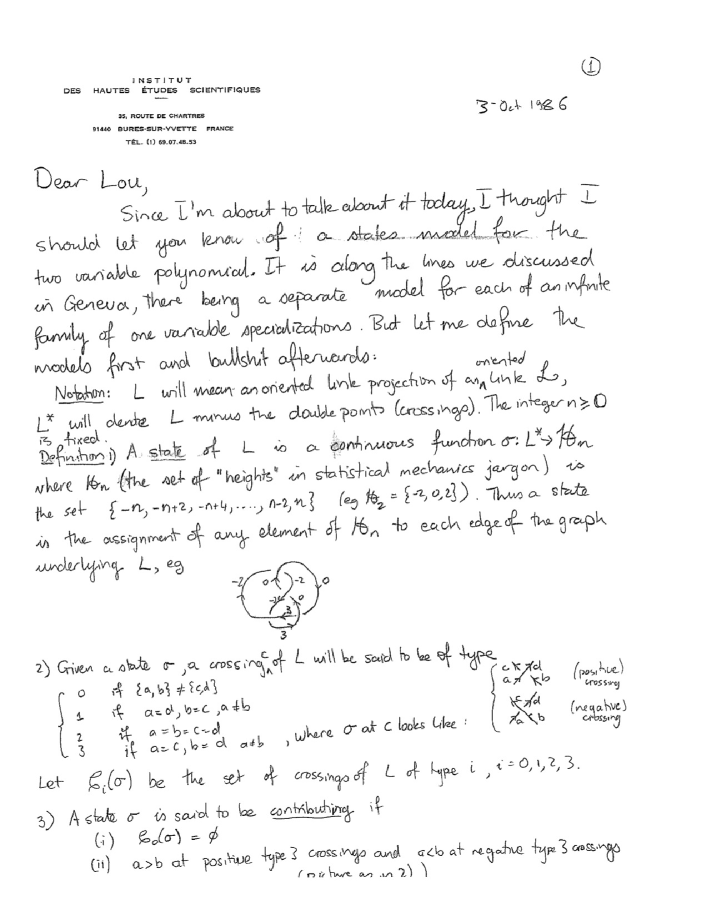 ①
INSTITUT
DES HAUTES ÉTUDES SCIENTIFIQUES
35, ROUTE DE CHARTRES
91440 BURES-SUR-YVETTE FRANCE
TÉL. (1) 69.07.48.53
3-Oct 1986
Dear Lou,
Since I'm about to talk about it today, I thought I
should let you know of a states model for the
two variable polynomial. It is along the lines we discussed
in Geneva, there being a separate model for each of an infinite
family of one variable specializations. But let me define the
models first and bullshit afterwards:
Notation: L will mean an oriented link projection of an oriented link ℒ,
L* will denote L minus the double points (crossings). The integer n ≥ 0
is fixed.
Definition 1) A state of L is a continuous function σ: L* → ℋn
where ℋn (the set of "heights" in statistical mechanics jargon) is
the set {-n, -n+2, -n+4, ...., n-2, n} (eg ℋ2 = {-2, 0, 2}). Thus a state
is the assignment of any element of ℋn to each edge of the graph
underlying L, eg
-2 0 -2 0
0
3
3
2) Given a state σ, a crossing c of L will be said to be of type
0 if {a,b} ≠ {c,d}
1 if a=d, b=c, a≠b
2 if a=b=c=d
3 if a=c, b=d a≠b , where σ at c looks like:
c d
a b
(positive)
crossing
c d
a b
(negative)
crossing
Let 𝒞i(σ) be the set of crossings of L of type i, i=0,1,2,3.
3) A state σ is said to be contributing if
(i) 𝒞0(σ) = ∅
(ii) a>b at positive type 3 crossings and a<b at negative type 3 crossings
(picture as in 2))